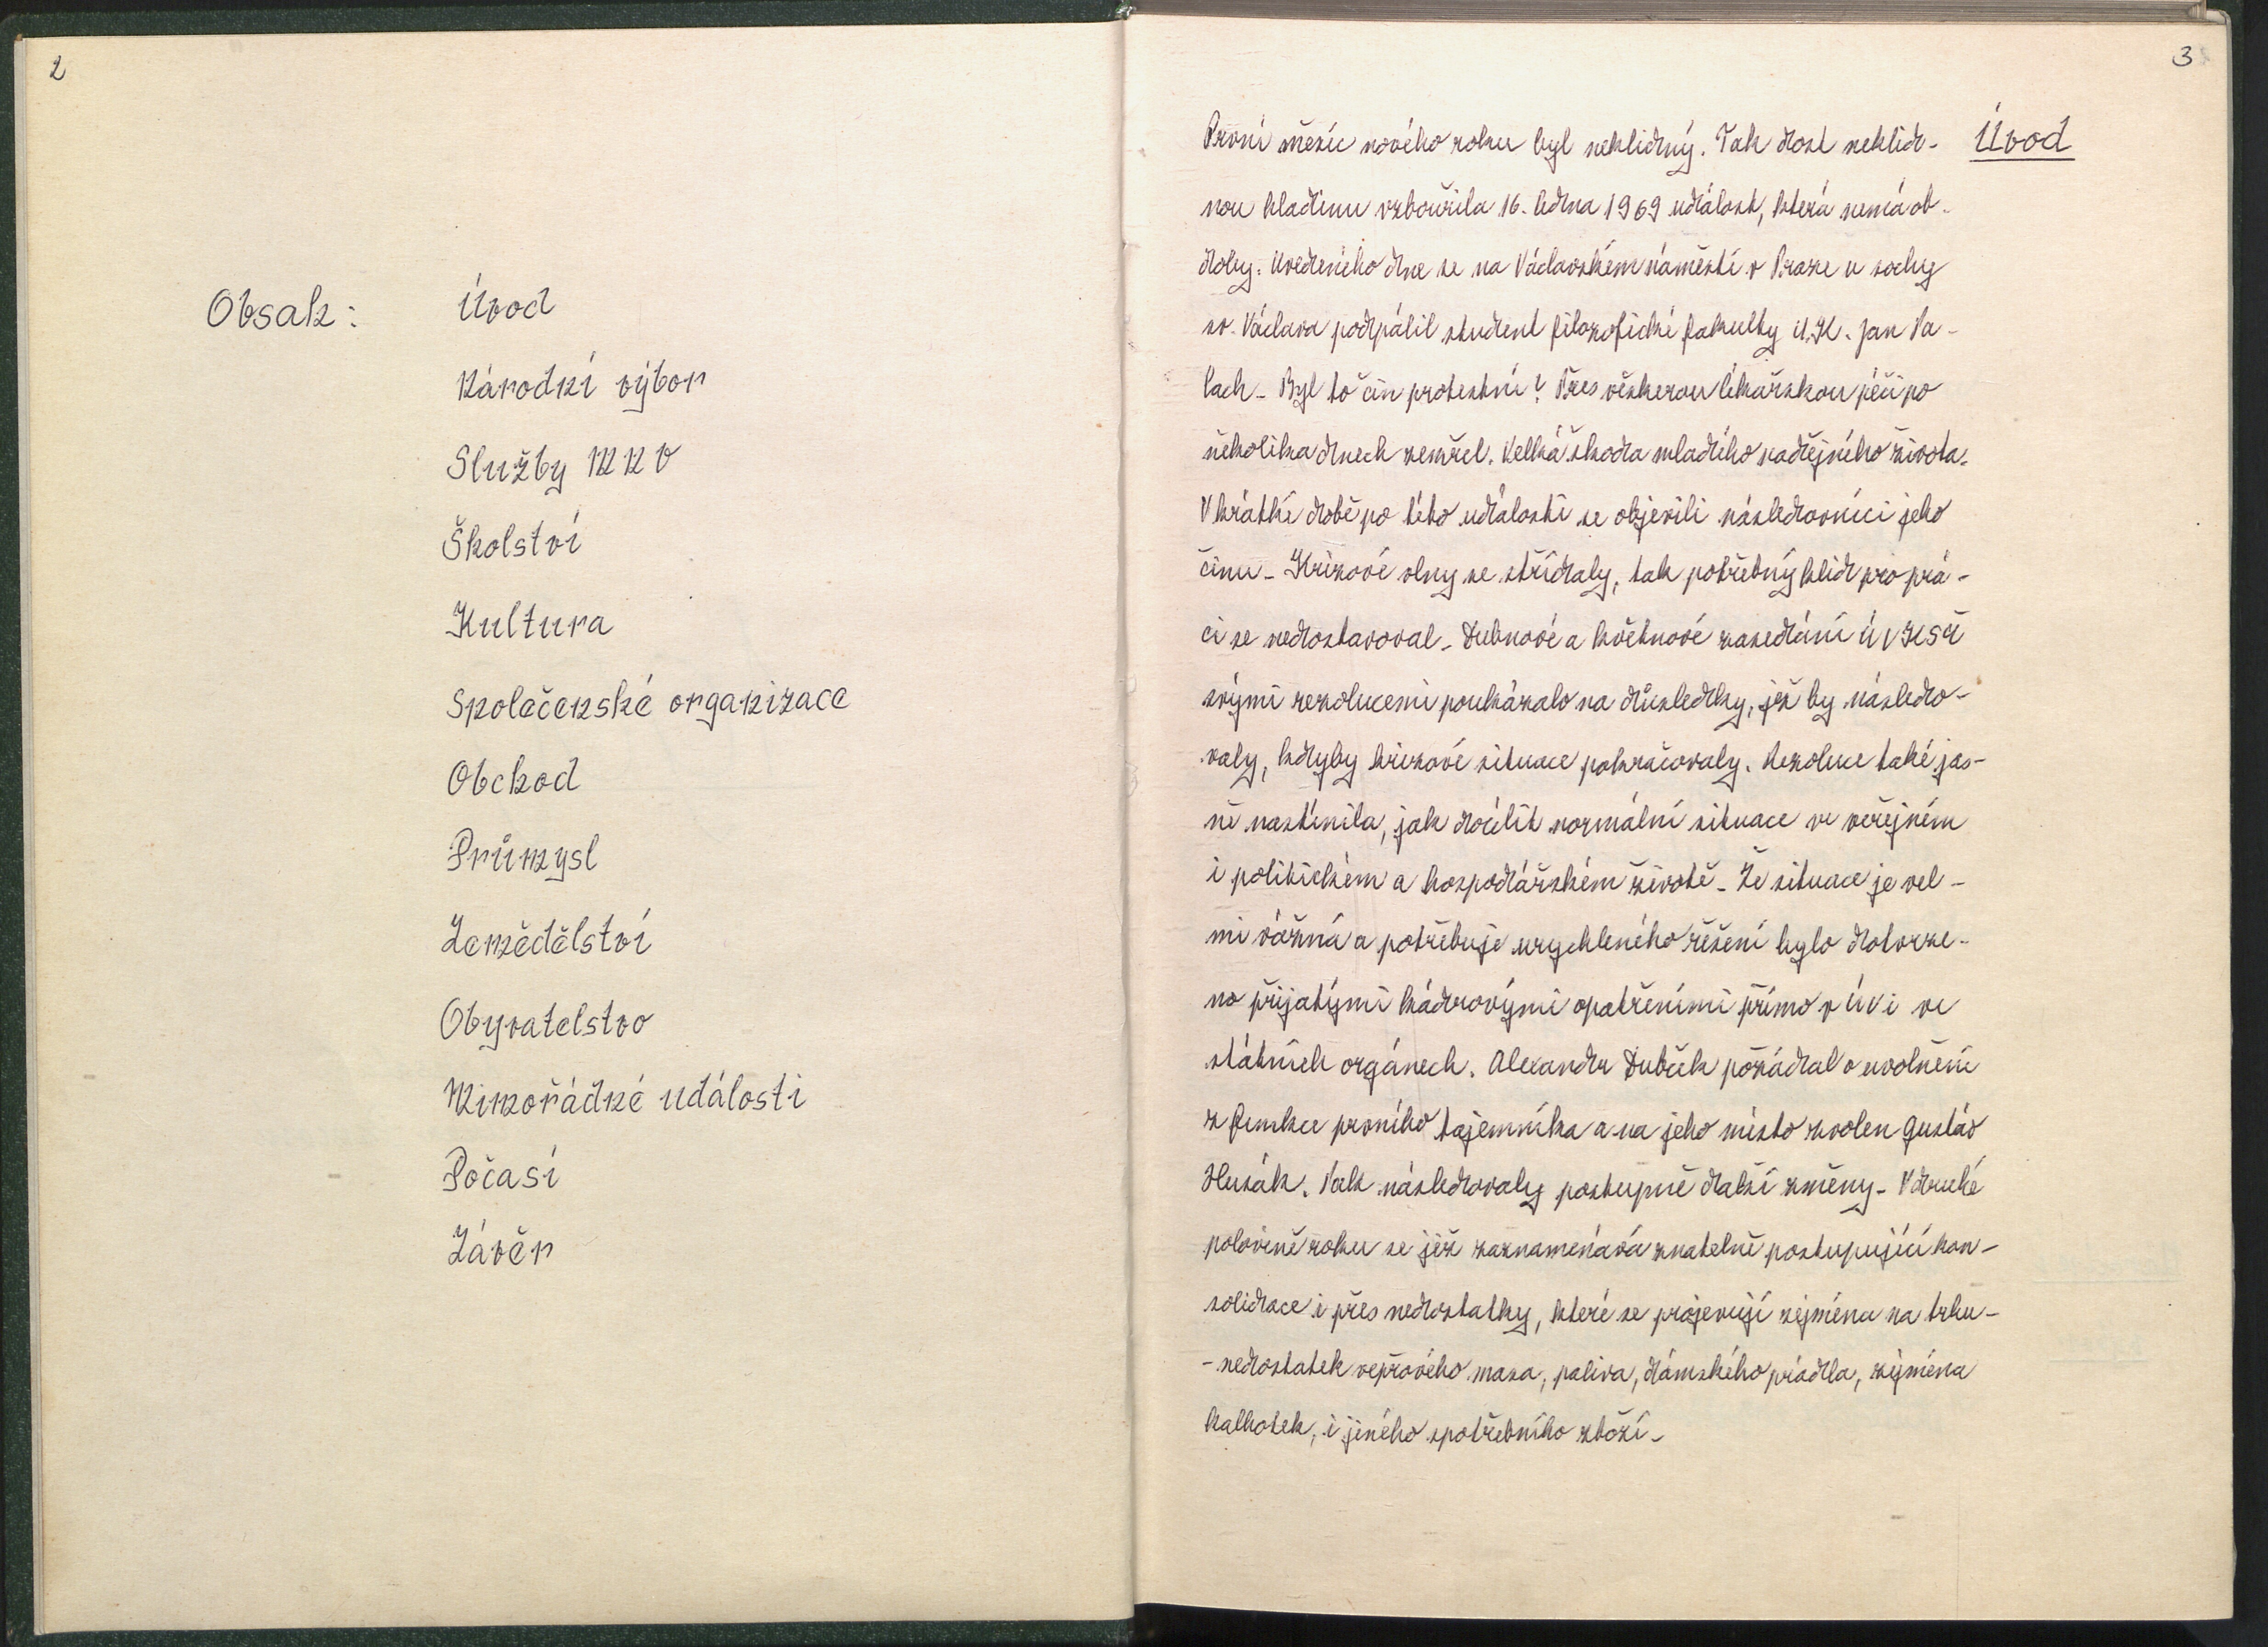 2
Obsah:
Úvod
Národní výbor
Služby MNV
Školství
Kultura
Společenské organizace
Obchod
Průmysl
Zemědělství
Obyvatelstvo
Mimořádné události
Počasí
Závěr
3
Úvod
První měsíc nového roku byl neklidný. Tak dost neklid-
nou hladinu vzbouřila 16. ledna 1969 událost, která nemá ob-
doby. Uvedeného dne se na Václavském náměstí v Praze u sochy
sv. Václava podpálil student filozofické fakulty U.K. Jan Pa-
lach. Byl to čin protestní? Přes věškerou lékařskou péči po
několika dnech zemřel. Velká škoda mladého nadějného života.
V krátké době po této události se objevili následovníci jeho
činu. Krizové vlny se střídaly, tak potřebný klid pro prá-
ci se nedostavoval. Dubnové a květnové zasedání ÚV KSČ
svými rezolucemi poukázalo na důsledky, jež by následo-
valy, kdyby krizové situace pokračovaly. Rezoluce také jas-
ně nastínila, jak docílit normální situace ve veřejném
i politickém a hospodářském životě. Že situace je vel-
mi vážná a potřebuje urychleného řešení bylo dotvrze-
no přijatými kádrovými opatřeními přímo v ÚV i ve
státních orgánech. Alexandr Dubček požádal o uvolnění
z funkce prvního tajemníka a na jeho místo zvolen Gustáv
Husák. Pak následovaly postupně další změny. V druhé
polovině roku se již zaznamenává znatelně postupující kon-
solidace i přes nedostatky, které se projevují zejména na trhu-
- nedostatek vepřového masa, paliva, dámského prádla, zejména
kalhotek, i jiného spotřebního zboží.